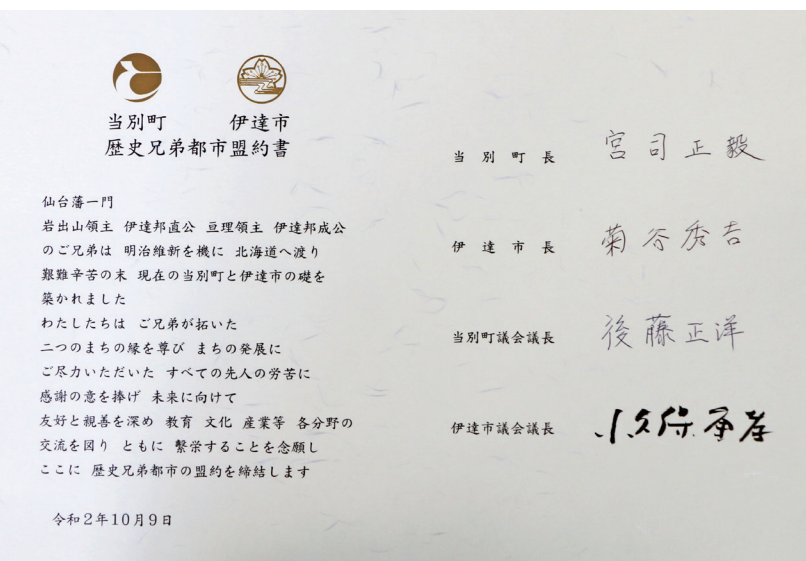 当別町 伊達市
歴史兄弟都市盟約書
仙台藩一門
岩出山領主 伊達邦直公 亘理領主 伊達邦成公
のご兄弟は 明治維新を機に 北海道へ渡り
艱難辛苦の末 現在の当別町と伊達市の礎を
築かれました
わたしたちは ご兄弟が拓いた
二つのまちの縁を尊び まちの発展に
ご尽力いただいた すべての先人の労苦に
感謝の意を捧げ 未来に向けて
友好と親善を深め 教育 文化 産業等 各分野の
交流を図り ともに 繁栄することを念願し
ここに 歴史兄弟都市の盟約を締結します
令和2年10月9日
当別町長 宮司正毅
伊達市長 菊谷秀吉
当別町議会議長 後藤正洋
伊達市議会議長 小久保